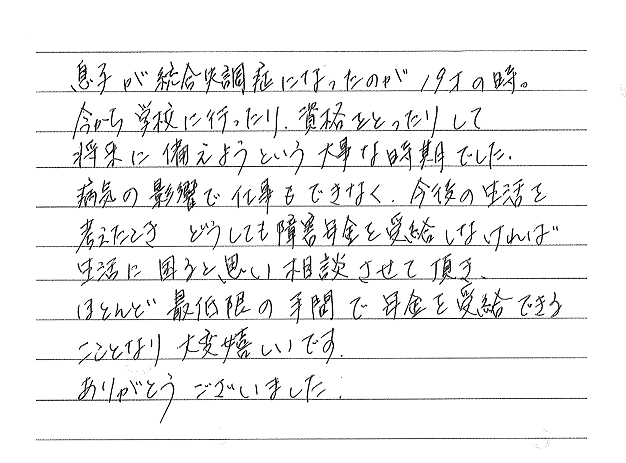 息子が統合失調症になったのが19才の時。
今から学校に行ったり、資格をとったりして
将来に備えようという大事な時期でした。
病気の影響で仕事もできなく、今後の生活を
考えたとき どうしても障害年金を受給しなければ
生活に困ると思い相談させて頂き、
ほとんど最低限の手間で年金を受給できる
こととなり大変嬉しいです。
ありがとうございました。